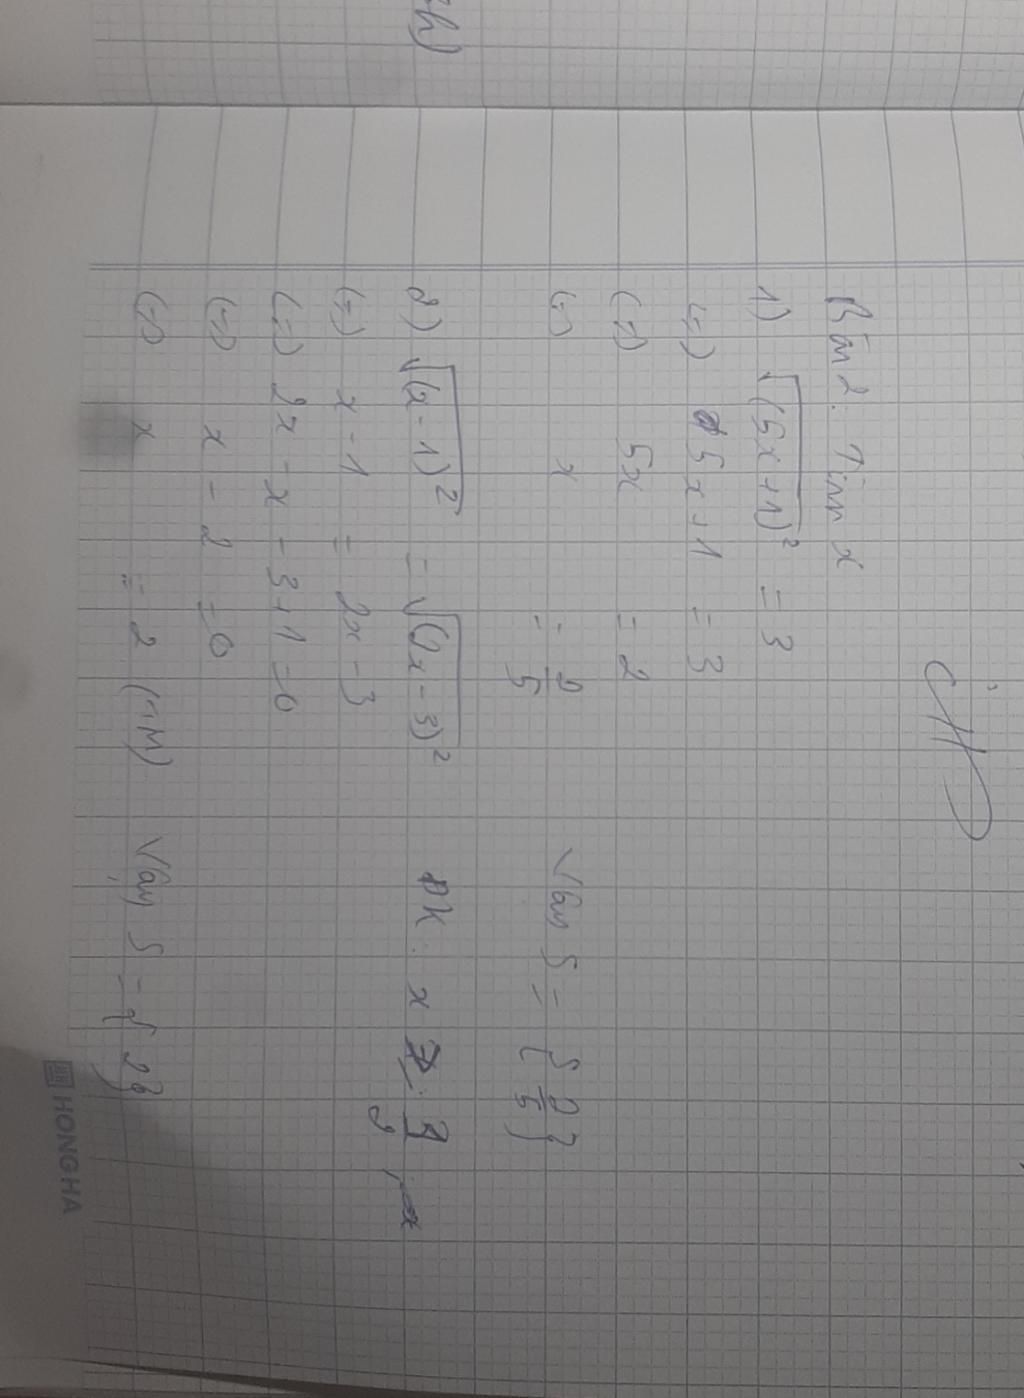 h)
Bài 2: Tìm x
1) √(5x+1)² = 3
(=) 5x+1 = 3
(=) 5x = 2
(=) x = 2/5 Vậy S = {2/5}
2) √(x-1)² = √(2x-3)² ĐK: x ≥ 3/2
(=) x-1 = 2x-3
(=) 2x-x-3+1=0
(=) x-2=0
(=) x = 2 (TM) Vậy S = {2}
HONG HA